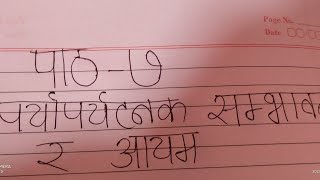 Page No.
Date
पाठ-७
पर्यापर्यटनक सम्भाव
र आयम